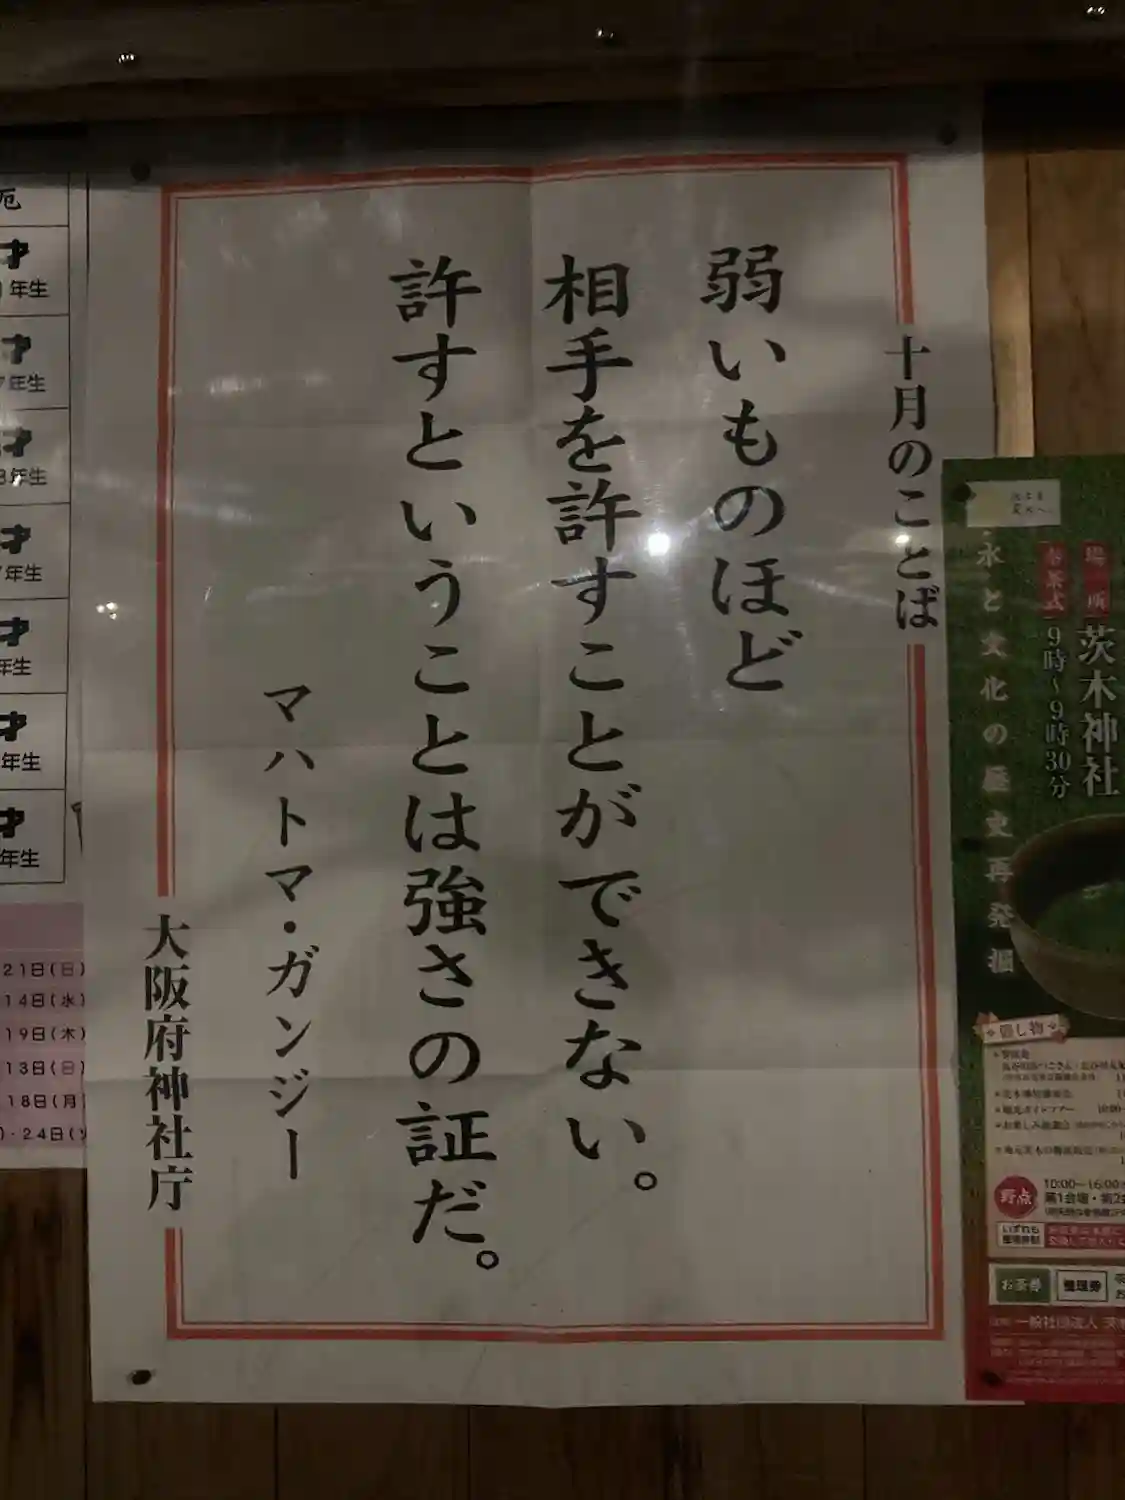 十月のことば
弱いものほど
相手を許すことができない。
許すということは強さの証だ。
マハトマ・ガンジー
大阪府神社庁
厄
才
年生
才
7年生
才
8年生
才
7年生
才
年生
才
年生
才
年生
21日(日)
14日(水)
19日(木)
13日(日)
18日(月)
・24日(火
場所
茨木神社
9時~9時30分
永と文化の歴史再発掘
催し物
野点
10:00~16:00
第1会場・第2
いずれも
整理券制
お茶券
整理券
一般社団法人 茨